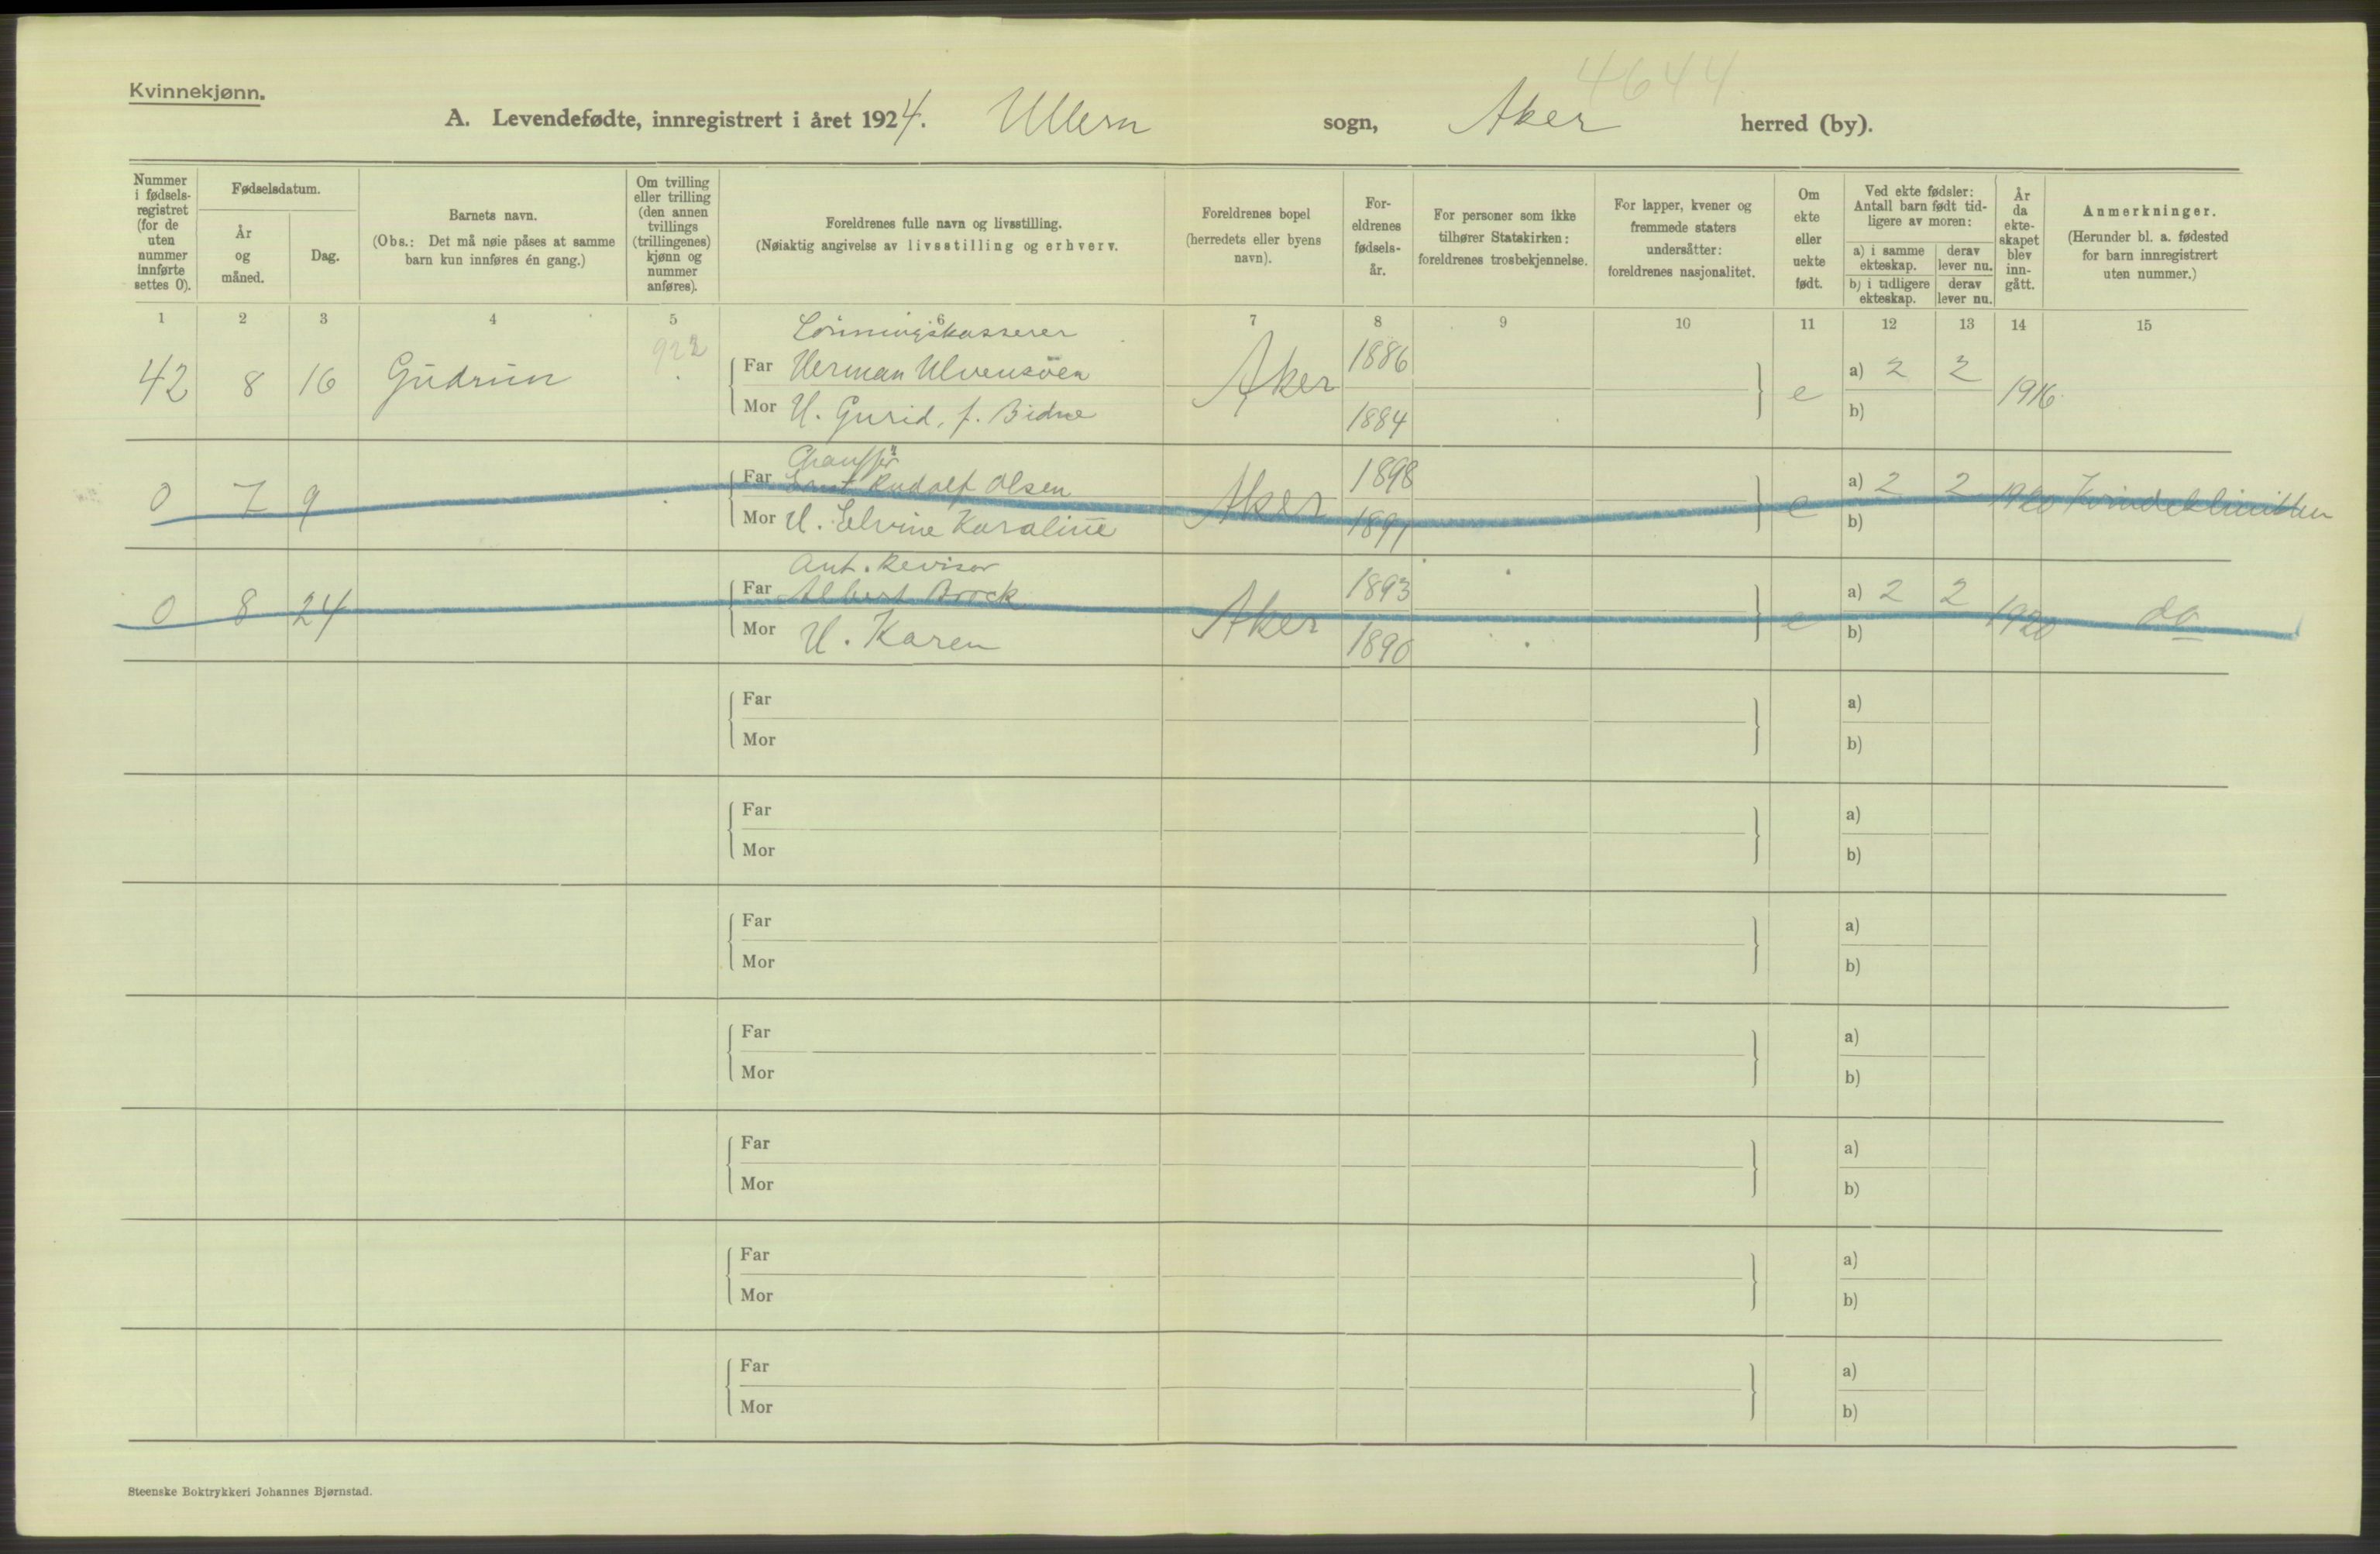 Kvinnekjønn.
4644
A. Levendefødte, innregistrert i året 1924. Ullern sogn, Aker herred (by).
Nummer i fødsels- registret (for de uten nummer innførte settes 0).
Fødselsdatum.
År og måned.
Dag.
Barnets navn.
(Obs.: Det må nøie påses at samme barn kun innføres én gang.)
Om tvilling eller trilling (den annen tvillings (trillingenes) kjønn og nummer anføres).
Foreldrenes fulle navn og livsstilling.
(Nøiaktig angivelse av livsstilling og erhverv.
Foreldrenes bopel (herredets eller byens navn).
For- eldrenes fødsels- år.
For personer som ikke tilhører Statskirken: foreldrenes trosbekjennelse.
For lapper, kvener og fremmede staters undersåtter: foreldrenes nasjonalitet.
Om ekte eller uekte født.
Ved ekte fødsler: Antall barn født tid- ligere av moren:
a) i samme ekteskap.
derav lever nu.
b) i tidligere ekteskap.
derav lever nu.
År da ekte- skapet blev inn- gått.
Anmerkninger.
(Herunder bl. a. fødested for barn innregistrert uten nummer.)
1 2 3 4 5 6 7 8 9 10 11 12 13 14 15
922
Lønningskasserer
42 8 16 Gudrun Far Herman Ulvensøen Aker 1886 e a) 2 2 1916
Mor H. Gurid, f. Bidne 1884 b)
Chauffør
0 7 9 Far Ernst Rudolf Olsen Aker 1898 e a) 2 2 1920 Kvindeklinikken
Mor H. Elvine Karoline 1891 b)
Ant. Revisor
0 8 24 Far Albert Brock Aker 1893 e a) 2 2 1920 do
Mor H. Karen 1890 b)
Far a)
Mor b)
Far a)
Mor b)
Far a)
Mor b)
Far a)
Mor b)
Far a)
Mor b)
Far a)
Mor b)
Far a)
Mor b)
Steenske Boktrykkeri Johannes Bjørnstad.